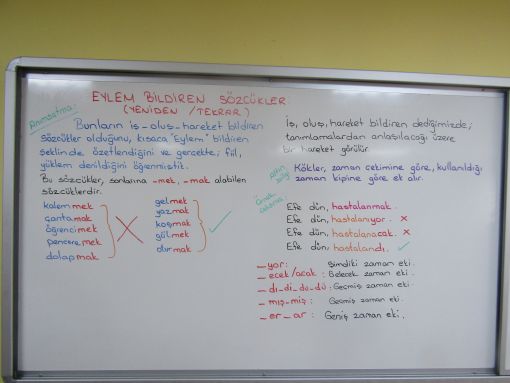 EYLEM BİLDİREN SÖZCÜKLER
(YENİDEN / TEKRAR)
Anımsatma:
Bunların iş-oluş-hareket bildiren
sözcükler olduğunu, kısaca "Eylem" bildiren
şeklinde özetlendiğini ve gerçekte; fiil,
yüklem denildiğini öğrenmiştik.
Bu sözcükler, sonlarına -mek, -mak alabilen
sözcüklerdir.
kalem mek
çanta mak
öğrenci mek
pencere mek
dolap mak
gelmek
yazmak
koşmak
gülmek
oturmak
İş, oluş, hareket bildiren dediğimizde;
tanımlamalardan anlaşılacağı üzere
bir hareket görülür.
Altın bilgi
Kökler, zaman çekimine göre, kullanıldığı
zaman kipine göre ek alır.
Örnek çalışma
Efe dün, hastalanmak.
Efe dün, hastalanıyor. ×
Efe dün, hastalanacak. ×
Efe dün, hastalandı. ✓
_ yor: Şimdiki zaman eki.
_ ecek/acak: Gelecek zaman eki.
_ dı-di-du-dü: Geçmiş zaman eki.
_ mış-miş: Geçmiş zaman eki.
_ er _ ar: Geniş zaman eki.